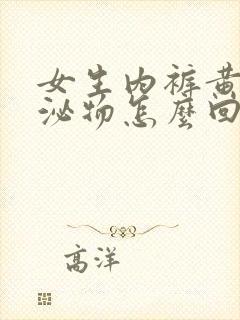 女生内裤黄
泌物怎麼回
高洋